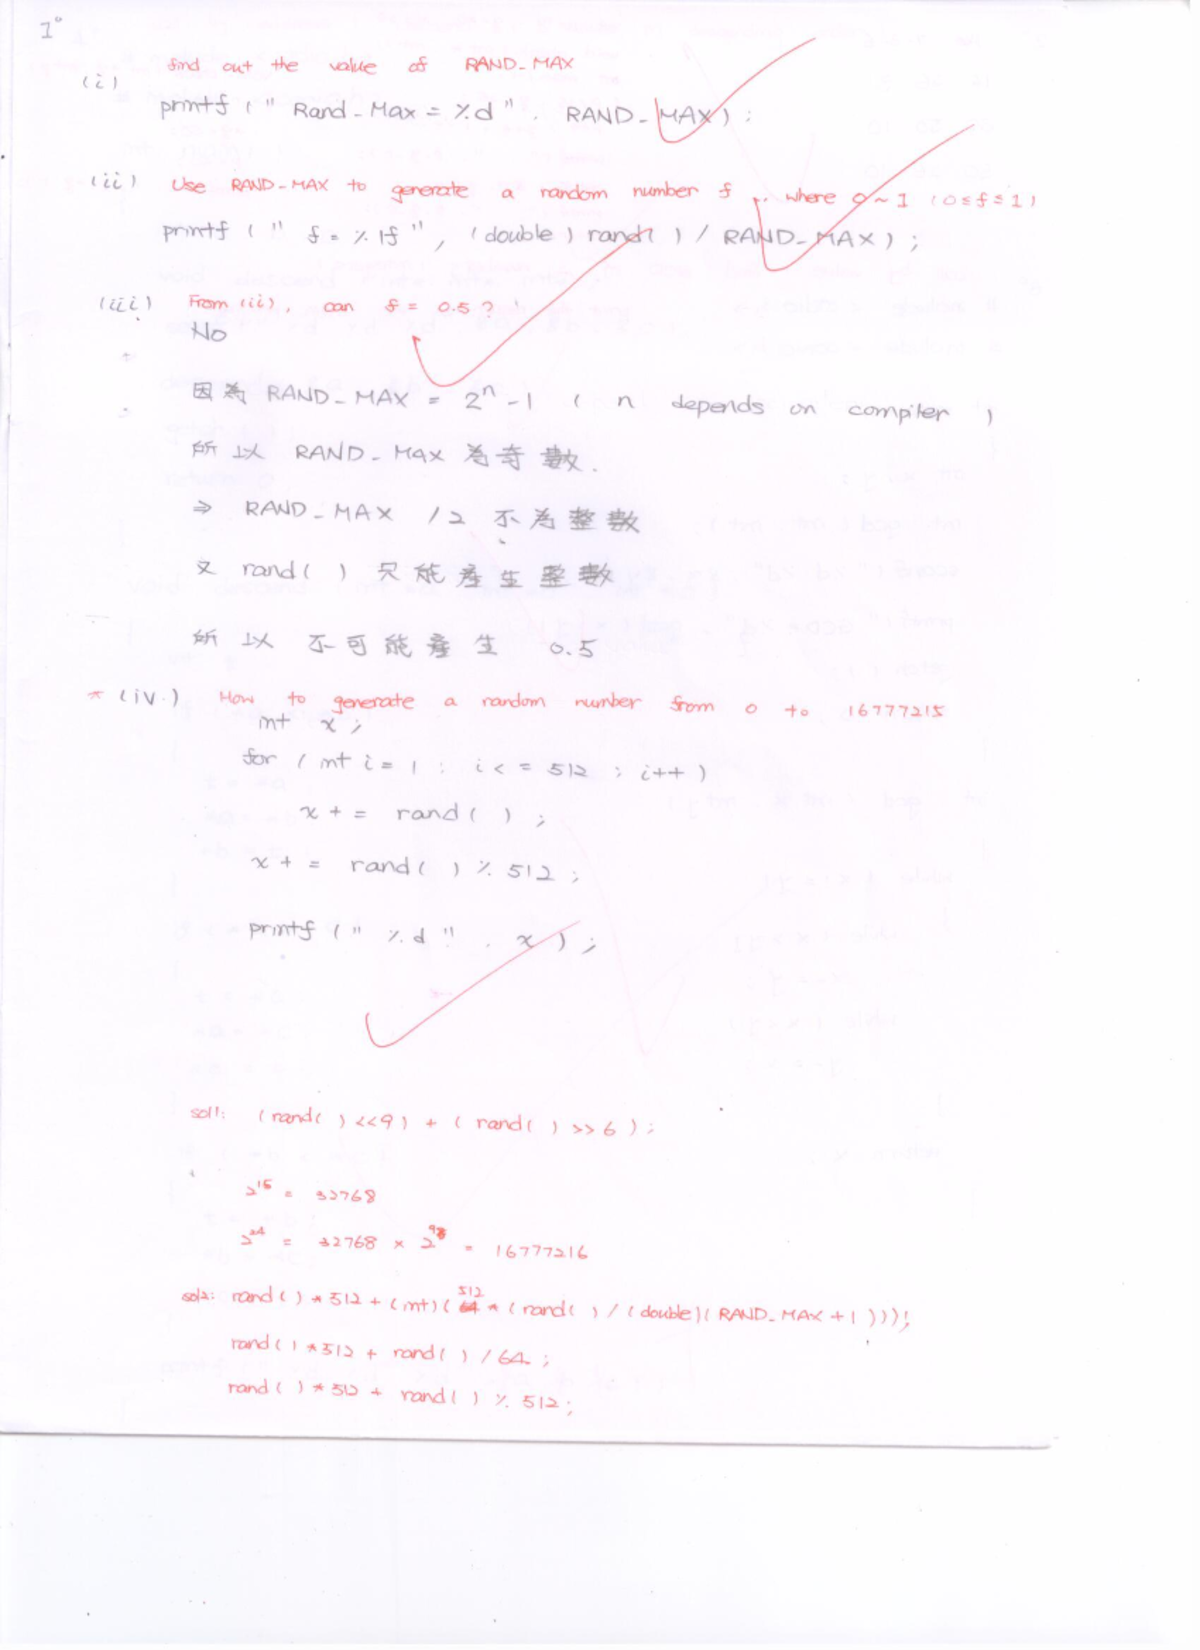 1°
find out the value of RAND_MAX
(i)
printf (" Rand_Max = %d ", RAND_MAX) ;
(ii) Use RAND_MAX to generate a random number f .. where 0 ~ 1 (0≤f≤1)
printf (" f = % lf ", (double) rand( ) / RAND_MAX) ;
(iii) From (ii), can f = 0.5 ?
No
因為 RAND_MAX = 2ⁿ -1 ( n depends on compiler )
所以 RAND_MAX 為奇數.
⇒ RAND_MAX /2 不為整數
又 rand( ) 只能產生整數
所以 不可能產生 0.5
* (iv.) How to generate a random number from 0 to 16777215
int x ;
for ( int i = 1 ; i < = 512 ; i++ )
x + = rand ( ) ;
x + = rand( ) % 512 ;
printf (" %d ", x ) ;
sol1: (rand( ) <<9) + ( rand( ) >> 6 ) ;
2¹⁵ = 32768
2²⁴ = 32768 × 2⁹ = 16777216
sol2: rand( ) * 512 + (int)( 512 * (rand( ) / (double)(RAND_MAX + 1 ))) ;
rand( ) *512 + rand( ) / 64 ;
rand( ) * 512 + rand( ) % 512 ;